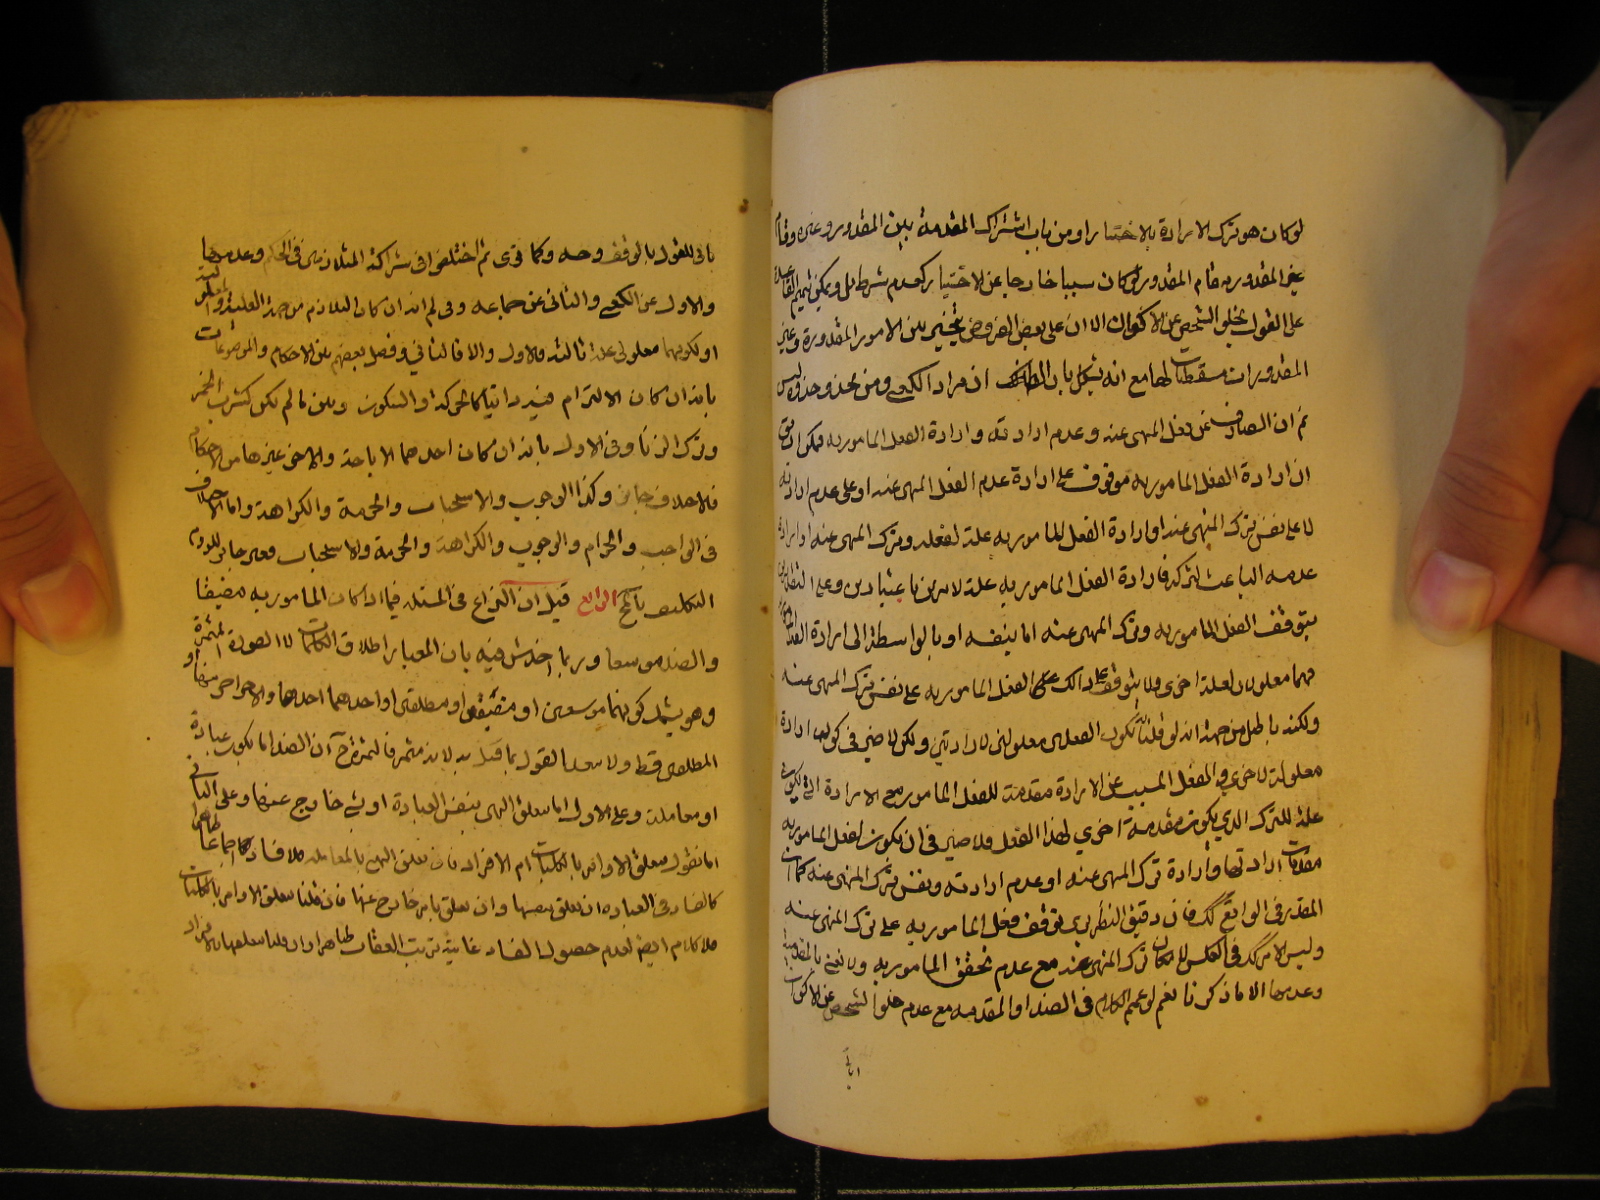 لو كان هو ترك الارادة بالاختيار او من باب اشتراك المقدمة بين المقدور وغيره وقام
غير المقدور مقام المقدور لو كان سببا خارجا عن الاختيار كعدم شرط بل ويمكن تتميم
على القول بخلو الشخص عن الاكوان الا ان على بعض الفروض تخيير بين الامور المقدورة وغير
المقدورات مسقطات لها مع انه يشكل بان ان مراد الكعبى ومن يحذو حذوه ليس
ثم ان الصارف عن فعل المنهى عنه وعدم ارادته وارادة الفعل المامور به فكما
ان ارادة الفعل المامور به موقوف على ارادة عدم الفعل المنهى عنه او على عدم ارادته
لا على نفس ترك المنهى عنه او ارادة الفعل المامور به علة لفعله وترك المنهى عنه
عدمه الباعث لتركه فارادة الفعل المامور به علة لامرين باعتبارين وعلى
يتوقف الفعل المامور به وترك المنهى عنه اما بنفسه او بالواسطة الى ارادة الفعل
فهما معلولان لعلة اخرى ولا يتوقف الفعل المامور به على نفس ترك المنهى عنه
ولكنه باطل من جهة انه لو قلنا بكون الفعلين معلولين لارادتين ولكن لا ضير فى كون ارادة
معلولة لاخرى والفعل المسبب عن الارادة مقدمة للفعل المامور مع الارادة التى تكون
علة للترك الذي يكون مقدمة اخرى لهذا الفعل ولا ضير فى ان يكون لفعل المامور به
مقدمات ارادتها وارادة ترك المنهى عنه او عدم ارادته ونفس ترك المنهى عنه كما ان
المقدر فى الواقع كك فان دقيق النظر يرى توقف فعل المامور به على ترك المنهى عنه
وليس الامر كك فى العكس لامكان ترك المنهى عنه مع عدم تحقق المامور به ولا نعنى بالمقدمة
وعدمها الا ما ذكرنا نعم لو عمم الكلام فى الضد او المقدمه مع عدم خلو الشخص عن الاكوان
ياتى للقول بالوقف وجه وكما قرى ثم اختلفوا فى شراكة المتلازمين فى الحكم وعدمها
والاول عن الكعبى والثانى عن جماعه وفى لم انه ان كان التلازم من جهة العلية
او لكونهما معلولى علة ثالثة فالاول والا فالثانى وفصل بعضهم بين الاحكام والموضوعات
بانه ان كان الالتزام فيه ذاتيا كالحركة او السكون وبين ما لم يكن كشرب الخمر
وترك الزنا وفى الاول بانه ان كان احدهما الاباحة والاخر غيرها من الاحكام
فالاختلاف جايز وكذا الوجوب والاستحباب والحرمة والكراهة واما الاختلاف
فى الواجب والحرام والوجوب والكراهة والحرمة والاستحباب فغير جايز للزوم
التكليف بالمح الرابع قيل ان النزاع فى المسئلة فيما اذا كان المامور به مضيقا
والضد موسعا وربما اخدش فيه بان المعيار اطلاق الكلمات لا الصورة المثمرة
وهو يشمل كونهما موسعين او مضيقين او مطلقين او احدهما احدها والاخر اخر منها
المطلقين فقط ولا يبعد القول بما قيل به لانه مثمر فالثمرة ح ان الضد اما يكون عبادة
او معاملة وعلى الاول اما يتعلق النهى بنفس العبادة او بشئ خارج عنها وعلى الثانى
اما نقول بتعلق الاوامر بالكليات ام الافراد فان تعلق النهى بالمعاملة فلا فساد
كالفساد فى العباده ان تعلق بنفسها وان تعلق بامر خارج عنها فان قلنا بتعلق الاوامر بالكليات
فلا كلام ايضا لعدم حصول الفساد غايته ترتب العقاب ظاهرا وان قلنا بتعلقها بالافراد